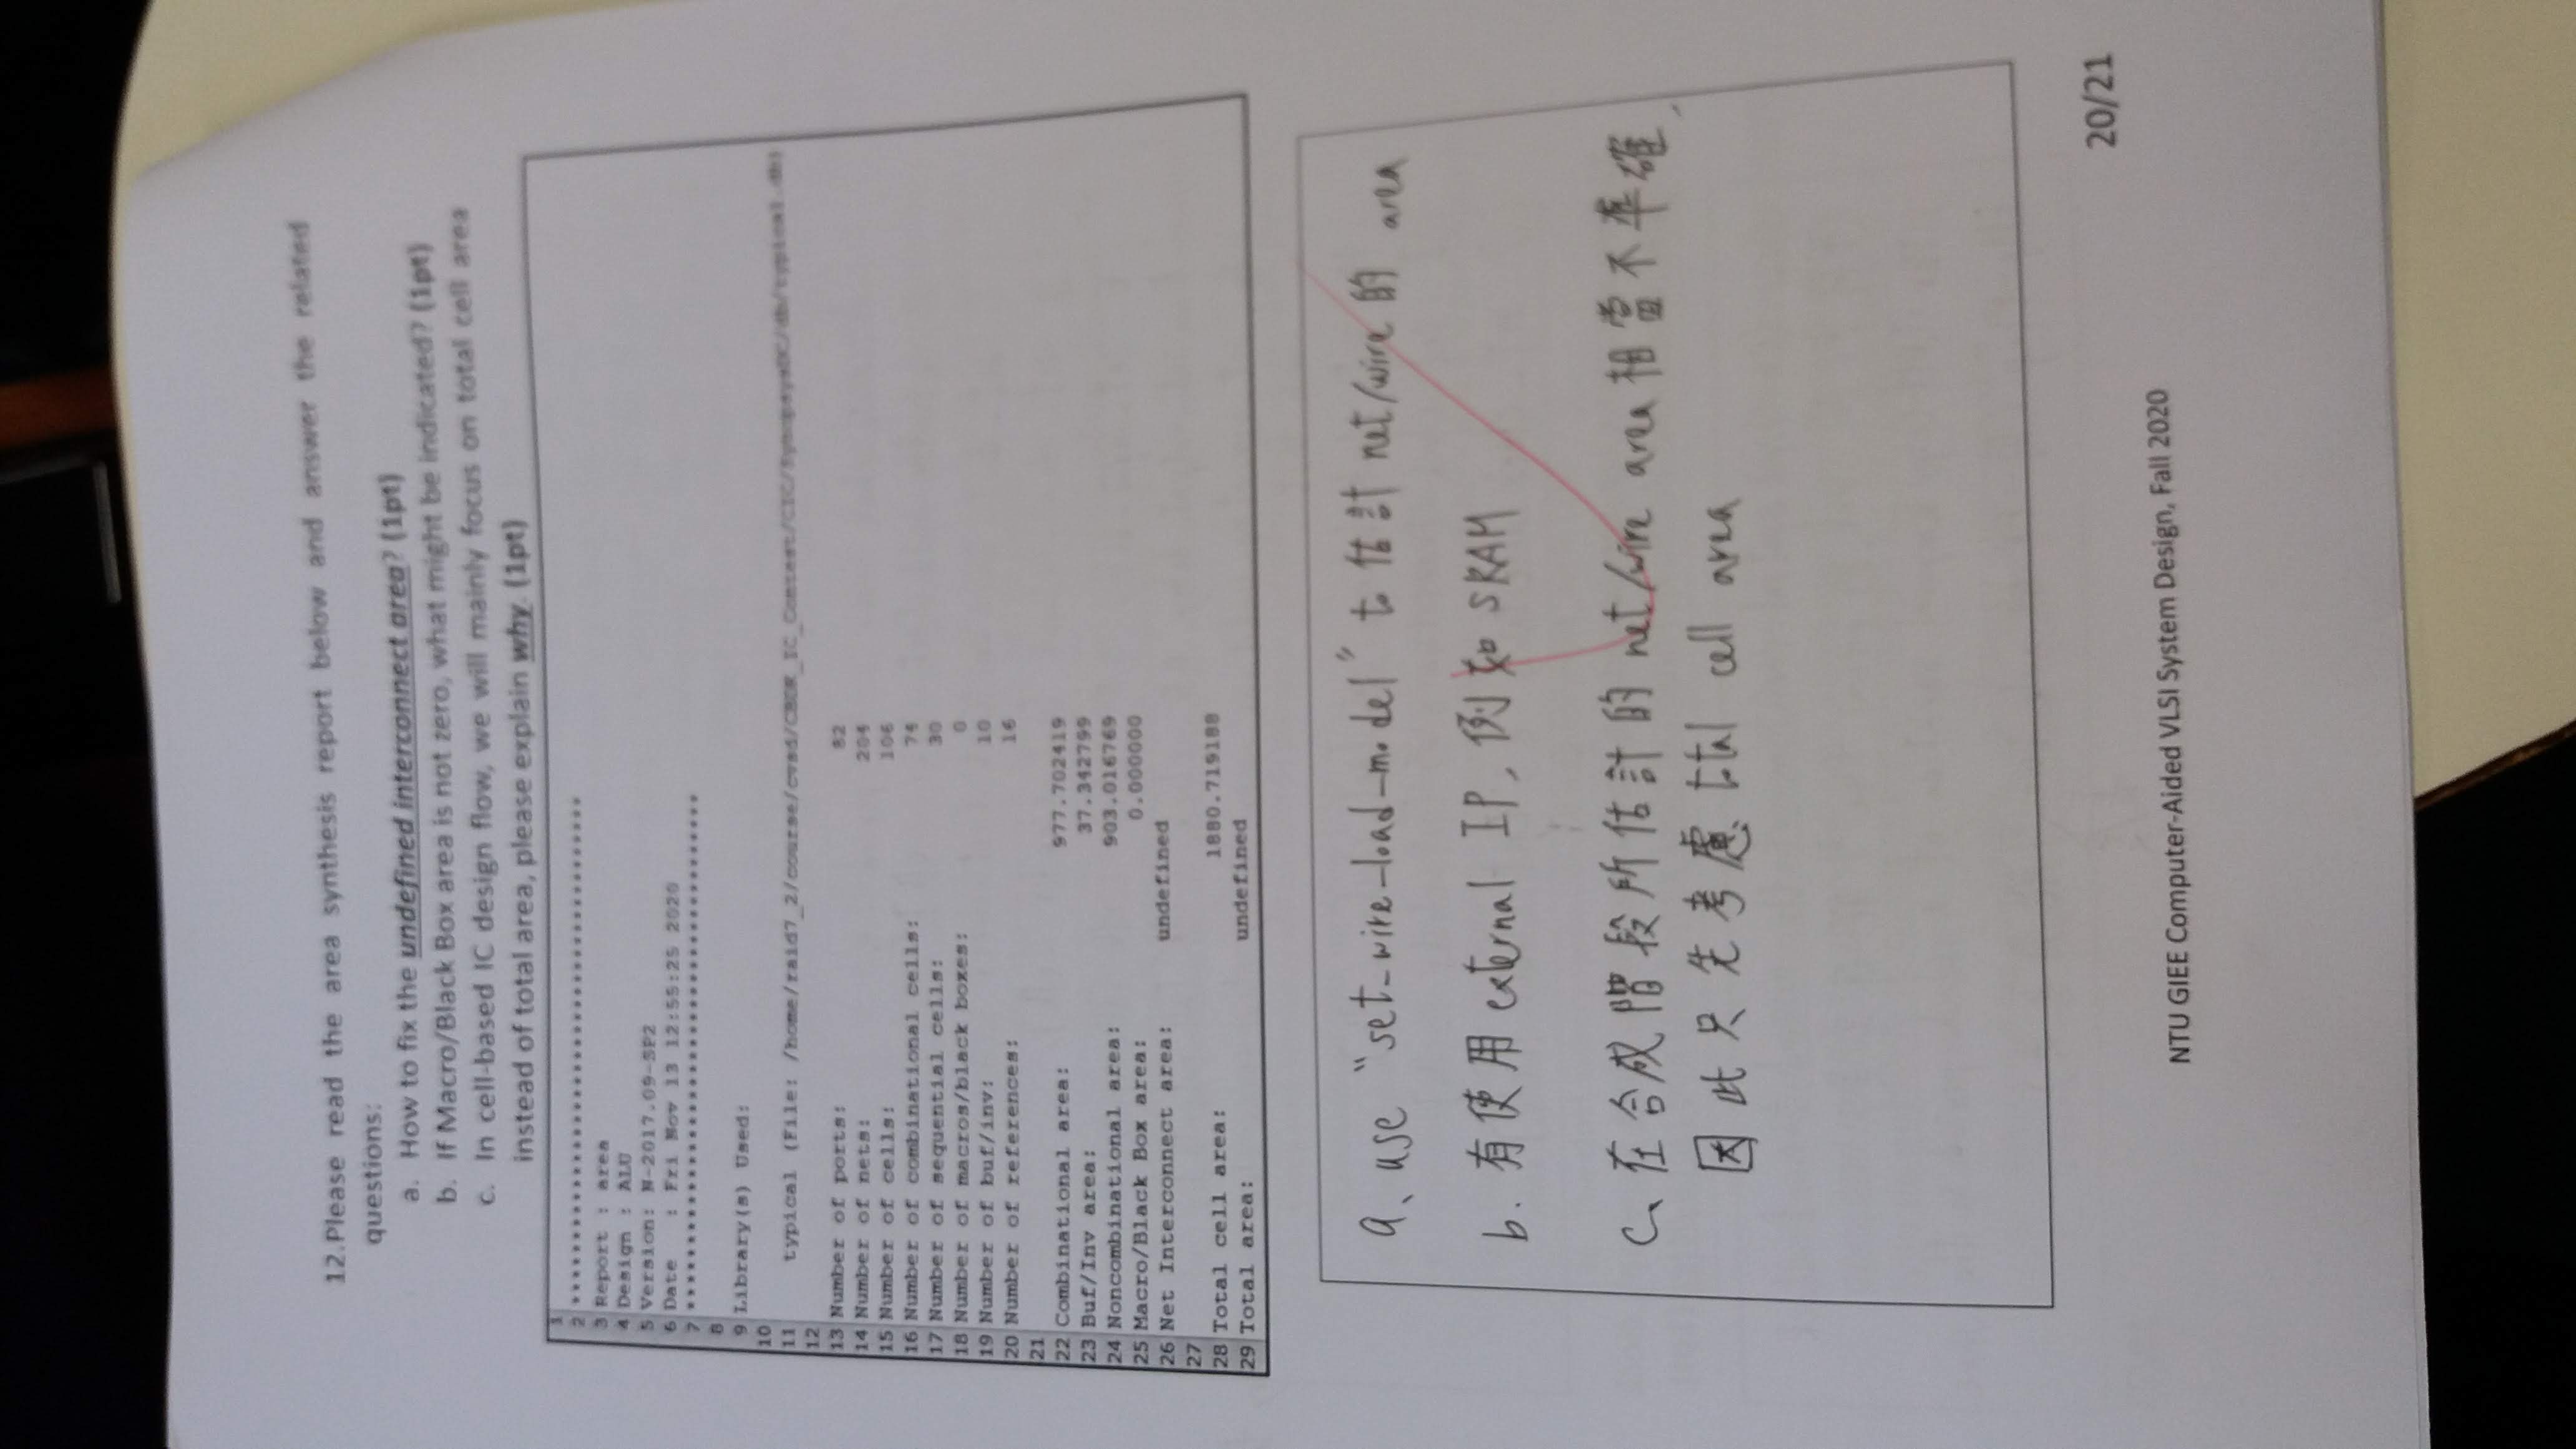 12.Please read the area synthesis report below and answer the related
questions:
a. How to fix the undefined interconnect area? (1pt)
b. If Macro/Black Box area is not zero, what might be indicated? (1pt)
c. In cell-based IC design flow, we will mainly focus on total cell area
instead of total area, please explain why. (1pt)
1
2 ****************************************
3 Report : area
4 Design : ALU
5 Version: N-2017.09-SP2
6 Date : Fri Nov 13 12:55:25 2020
7 ****************************************
8
9 Library(s) Used:
10
11 typical (File: /home/raid7_2/course/cvsd/CBDK_IC_Contest/CIC/SynopsysDC/db/typical.db)
12
13 Number of ports: 82
14 Number of nets: 204
15 Number of cells: 106
16 Number of combinational cells: 74
17 Number of sequential cells: 30
18 Number of macros/black boxes: 0
19 Number of buf/inv: 10
20 Number of references: 16
21
22 Combinational area: 977.702419
23 Buf/Inv area: 37.342799
24 Noncombinational area: 903.016769
25 Macro/Black Box area: 0.000000
26 Net Interconnect area: undefined
27
28 Total cell area: 1880.719188
29 Total area: undefined
a、use "set_wire_load_model" to 估計 net/wire 的 area
b. 有使用 external IP, 例如 SRAM
c、在合成階段所估計的 net/wire area 相當不準確,
因此只先考慮 total cell area
20/21
NTU GIEE Computer-Aided VLSI System Design, Fall 2020